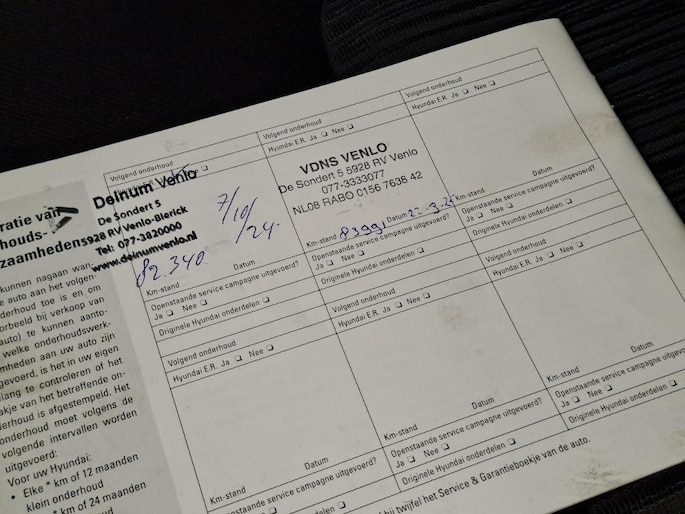 ratie van
houds-
zaamheden
kunnen nagaan wan-
e auto aan het volgen-
derhoud toe is en om
oorbeeld bij verkoop van
auto) te kunnen aanto-
welke onderhoudswerk-
mheden aan uw auto zijn
gevoerd, is het in uw eigen
lang te controleren of het
akje van het betreffende on-
derhoud is afgestempeld. Het
onderhoud moet volgens de
volgende intervallen worden
uitgevoerd:
Voor uw Hyundai:
• Elke * km of 12 maanden
klein onderhoud
* km of 24 maanden
Volgend onderhoud
Deinum Venlo
De Sondert 5
5928 RV Venlo-Blerick
Tel: 077-3820000
www.deinumvenlo.nl
7/10/24
82.340
Km-stand Datum
Openstaande service campagne uitgevoerd?
Ja Nee
Originele Hyundai onderdelen
Volgend onderhoud
Hyundai E.R. Ja Nee
VDNS VENLO
De Sondert 5 5928 RV Venlo
077-3333077
NL08 RABO 0156 7638 42
Km-stand 83991 Datum
Openstaande service campagne uitgevoerd?
Ja Nee
Originele Hyundai onderdelen
Volgend onderhoud
Hyundai E.R. Ja Nee
Km-stand Datum
Openstaande service campagne uitgevoerd?
Ja Nee
Originele Hyundai onderdelen
Volgend onderhoud
Hyundai E.R. Ja Nee
Km-stand Datum
Openstaande service campagne uitgevoerd?
Ja Nee
Volgend onderhoud
Hyundai E.R. Ja Nee
Km-stand Datum
Openstaande service campagne uitgevoerd?
Ja Nee
Originele Hyundai onderdelen
Volgend onderhoud
Hyundai E.R. Ja Nee
Km-stand Datum
Openstaande service campagne uitgevoerd?
Ja Nee
Originele Hyundai onderdelen
bij twijfel het Service & Garantieboekje van de auto.